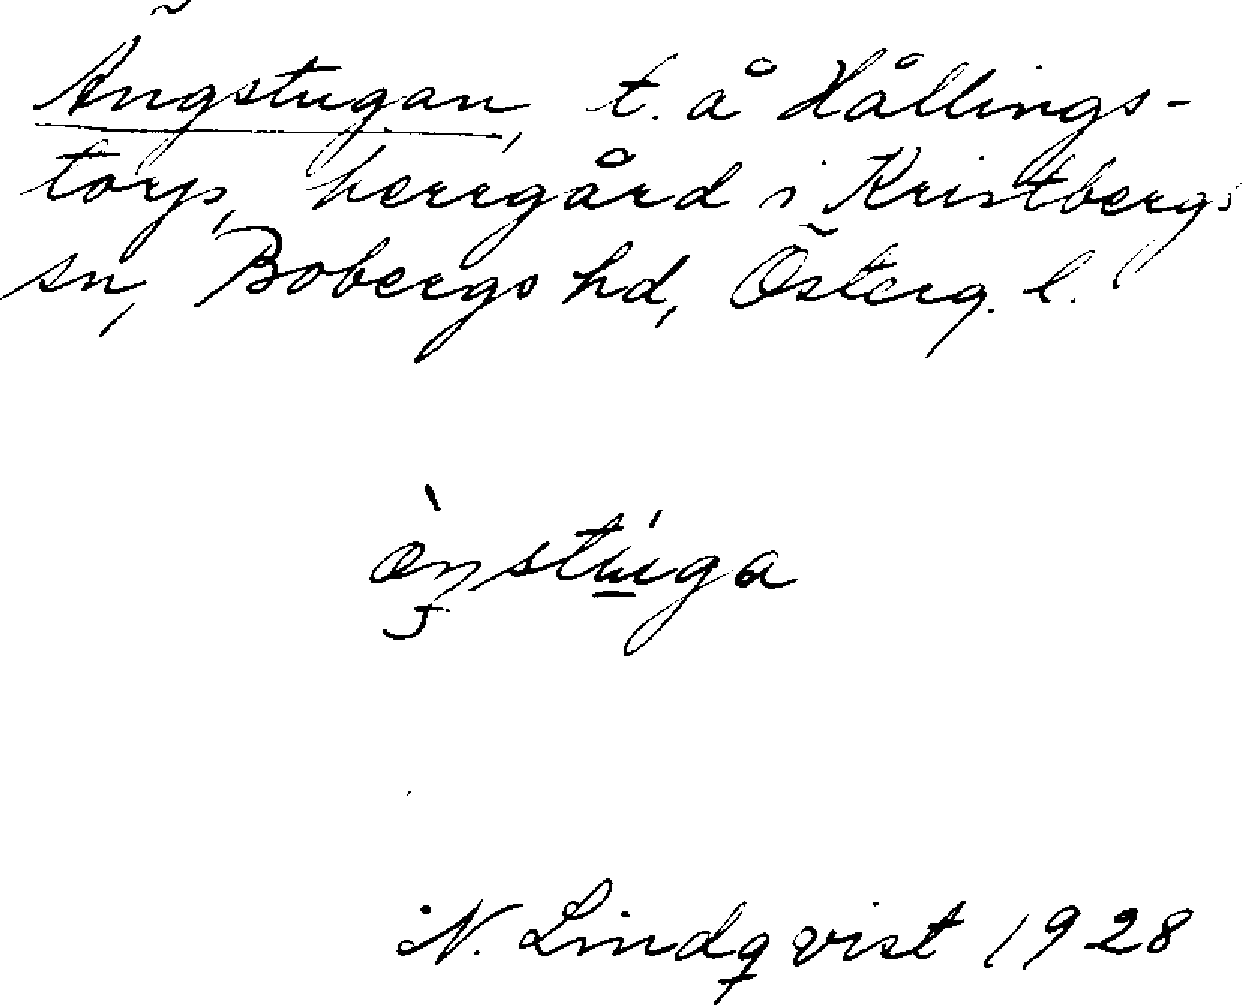 Ängstugan, t. å Hållings-
torp, herrgård i Kristbergs
sn, Bobergs hd, Österg. l.
ænstuga
N. Lindqvist 1928